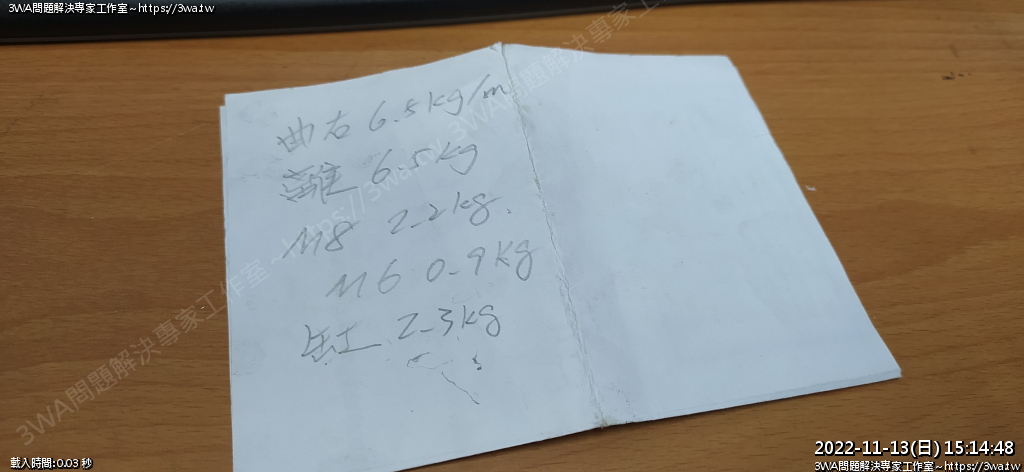 3WA問題解決專家工作室~https://3wa.tw
曲右 6.5kg/m
離 6.5kg
M8 2.2kg.
M6 0.9kg
缸 2.3kg
3WA問題解決專家工作室~https://3wa.tw
載入時間:0.03 秒
2022-11-13(日) 15:14:48
3WA問題解決專家工作室~https://3wa.tw